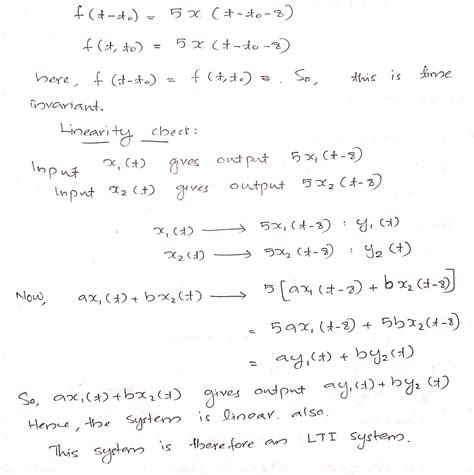 f(t-t₀) = 5x(t-t₀-8)
f(t,t₀) = 5x(t-t₀-8)
here, f(t-t₀) = f(t,t₀). So, this is time
invariant.
Linearity check:
Input x₁(t) gives output 5x₁(t-8)
Input x₂(t) gives output 5x₂(t-8)
x₁(t) ⟶ 5x₁(t-8) : y₁(t)
x₂(t) ⟶ 5x₂(t-8) : y₂(t)
Now, ax₁(t)+bx₂(t) ⟶ 5[ax₁(t-8) + bx₂(t-8)]
= 5ax₁(t-8) + 5bx₂(t-8)
= ay₁(t) + by₂(t)
So, ax₁(t)+bx₂(t) gives output ay₁(t)+by₂(t)
Hence, the system is linear also.
This system is therefore an LTI system.